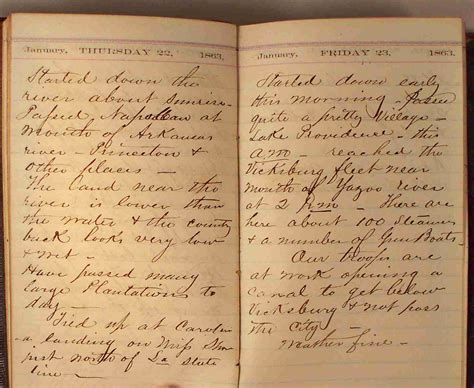 January, THURSDAY 22, 1863.
Started down the
river about Sunrise-
Passed Napolean at
Mouth of Arkansas
river - Princeton &
other places -
The land near the
river is lower than
the water & the country
back looks very low
& wet -
Have passed many
large Plantations to
day -
Tied up at Carolina
a landing on Miss Shore
just north of La state
line -
January, FRIDAY 23, 1863.
Started down early
this morning - Passed
quite a pretty Village -
Lake Providence - this
A.M reached the
Vicksburg fleet near
Mouth of Yazoo river
at 2 P.M - There are
here about 100 Steamers
& a number of Gun Boats
Our troops are
at work opening a
canal to get below
Vicksburg & not pass
the City -
Weather fine -